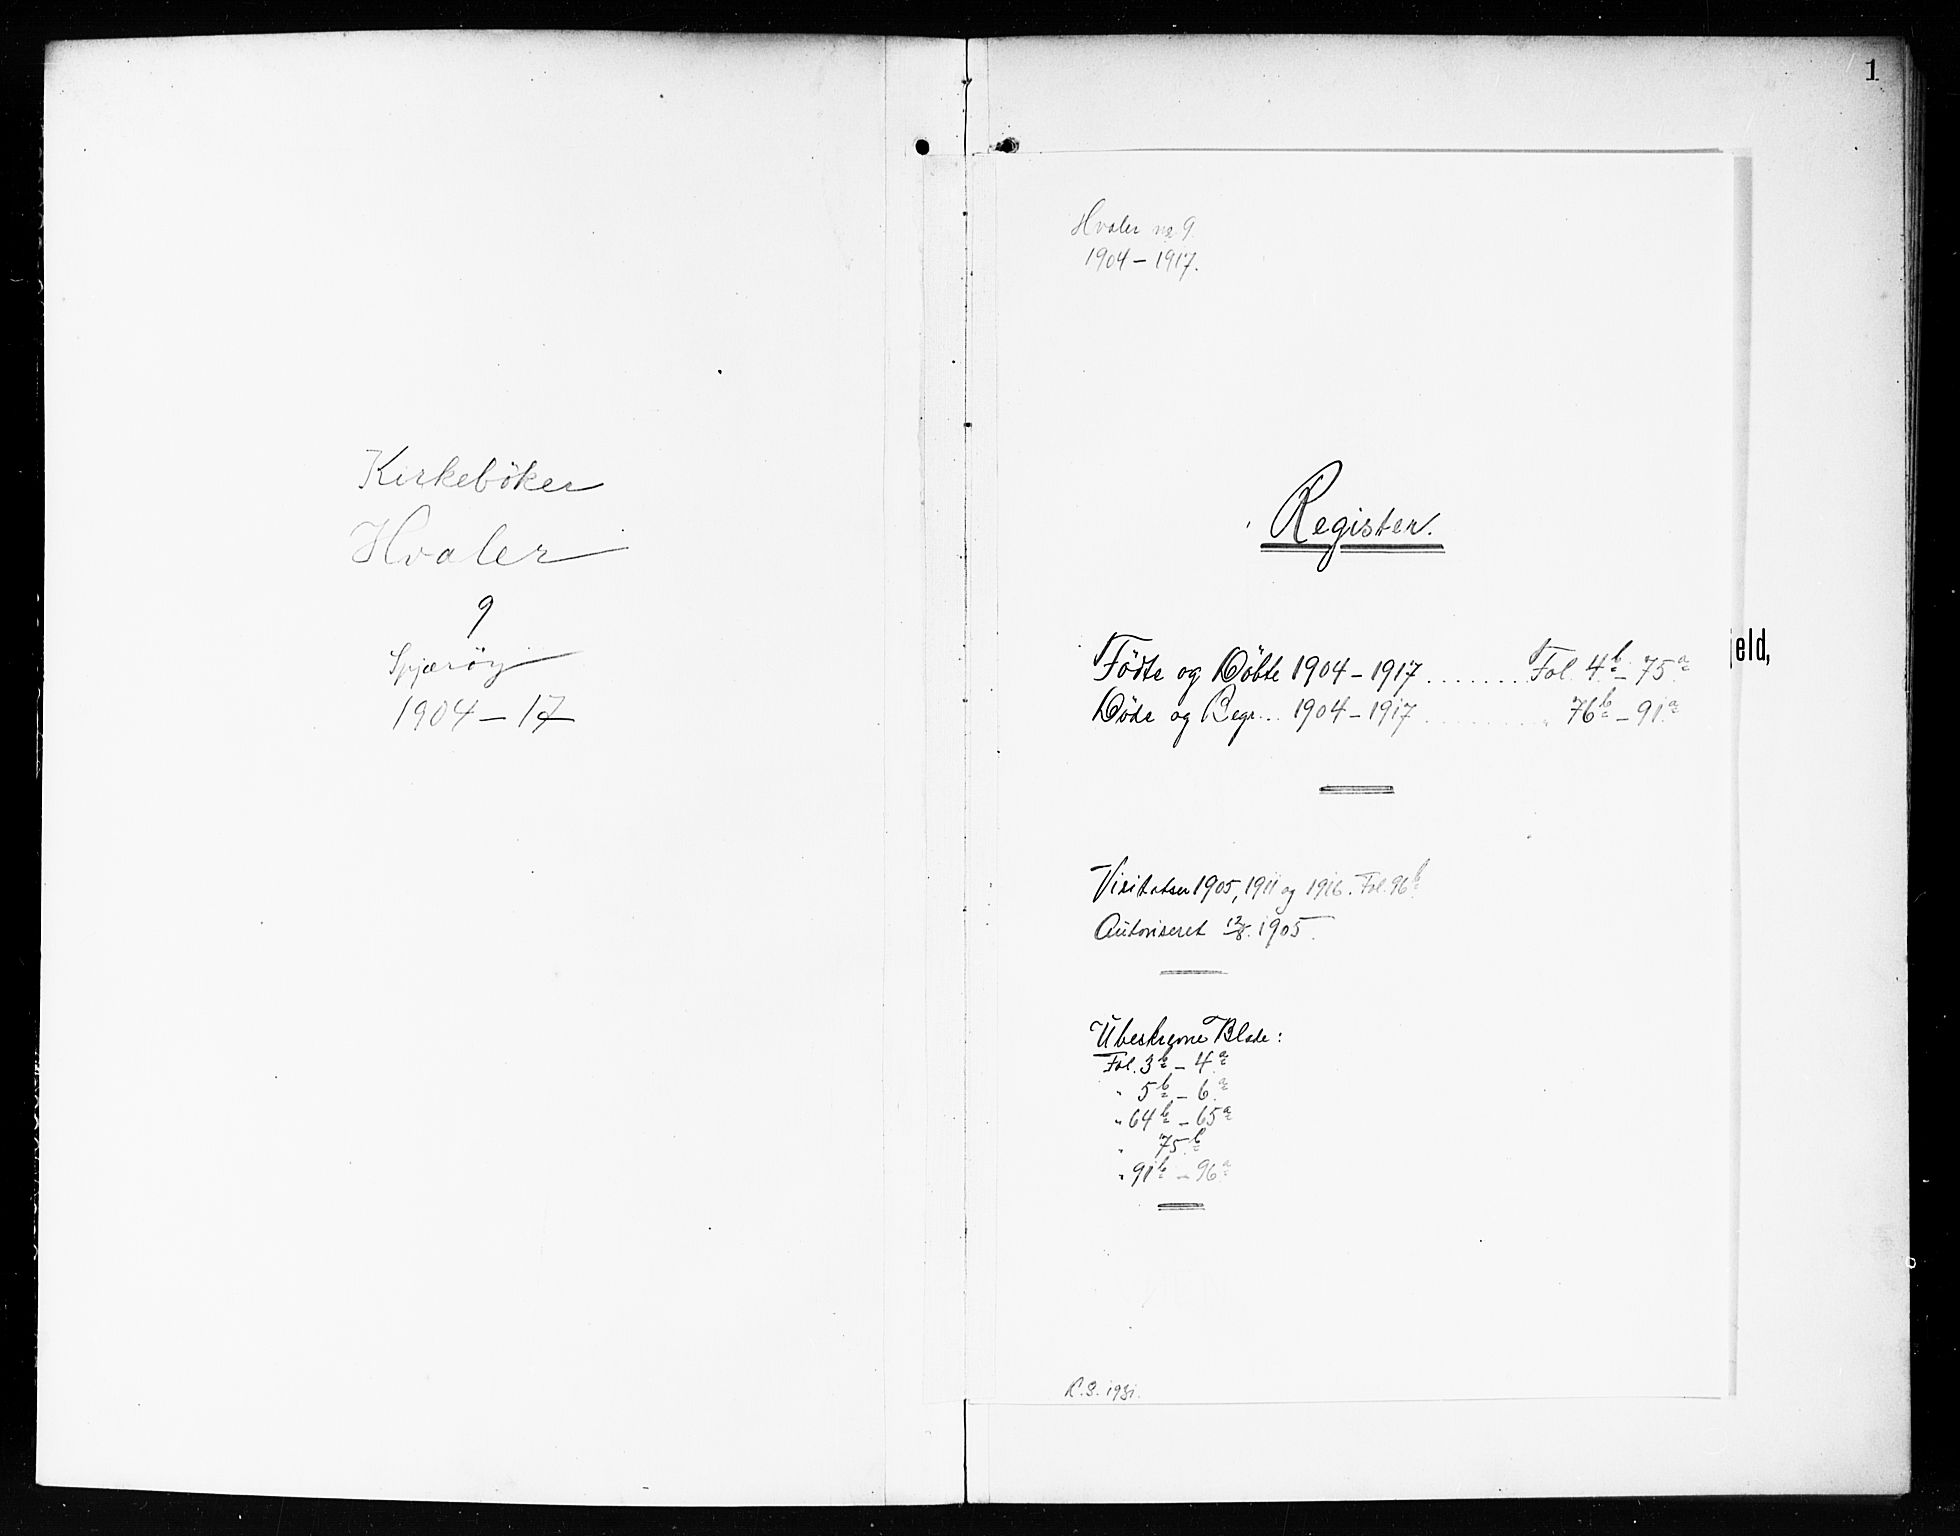 Kirkebøker
Hvaler
9
Spjærøy
1904 – 17
1
Hvaler nr. 9.
1904 – 1917.
Register.
Fødte og Døbte 1904 – 1917 ....... Fol. 4b – 75a
Døde og Begr... 1904 – 1917 ........ " 76b – 91a
jeld,
Visitatser 1905, 1911 og 1916. Fol. 96b
Autoriseret 12/8. 1905.
Ubeskrevne Blade:
Fol. 3b – 4a
" 5b – 6a
" 64b – 65a
" 75b
" 91b – 96a
1931.